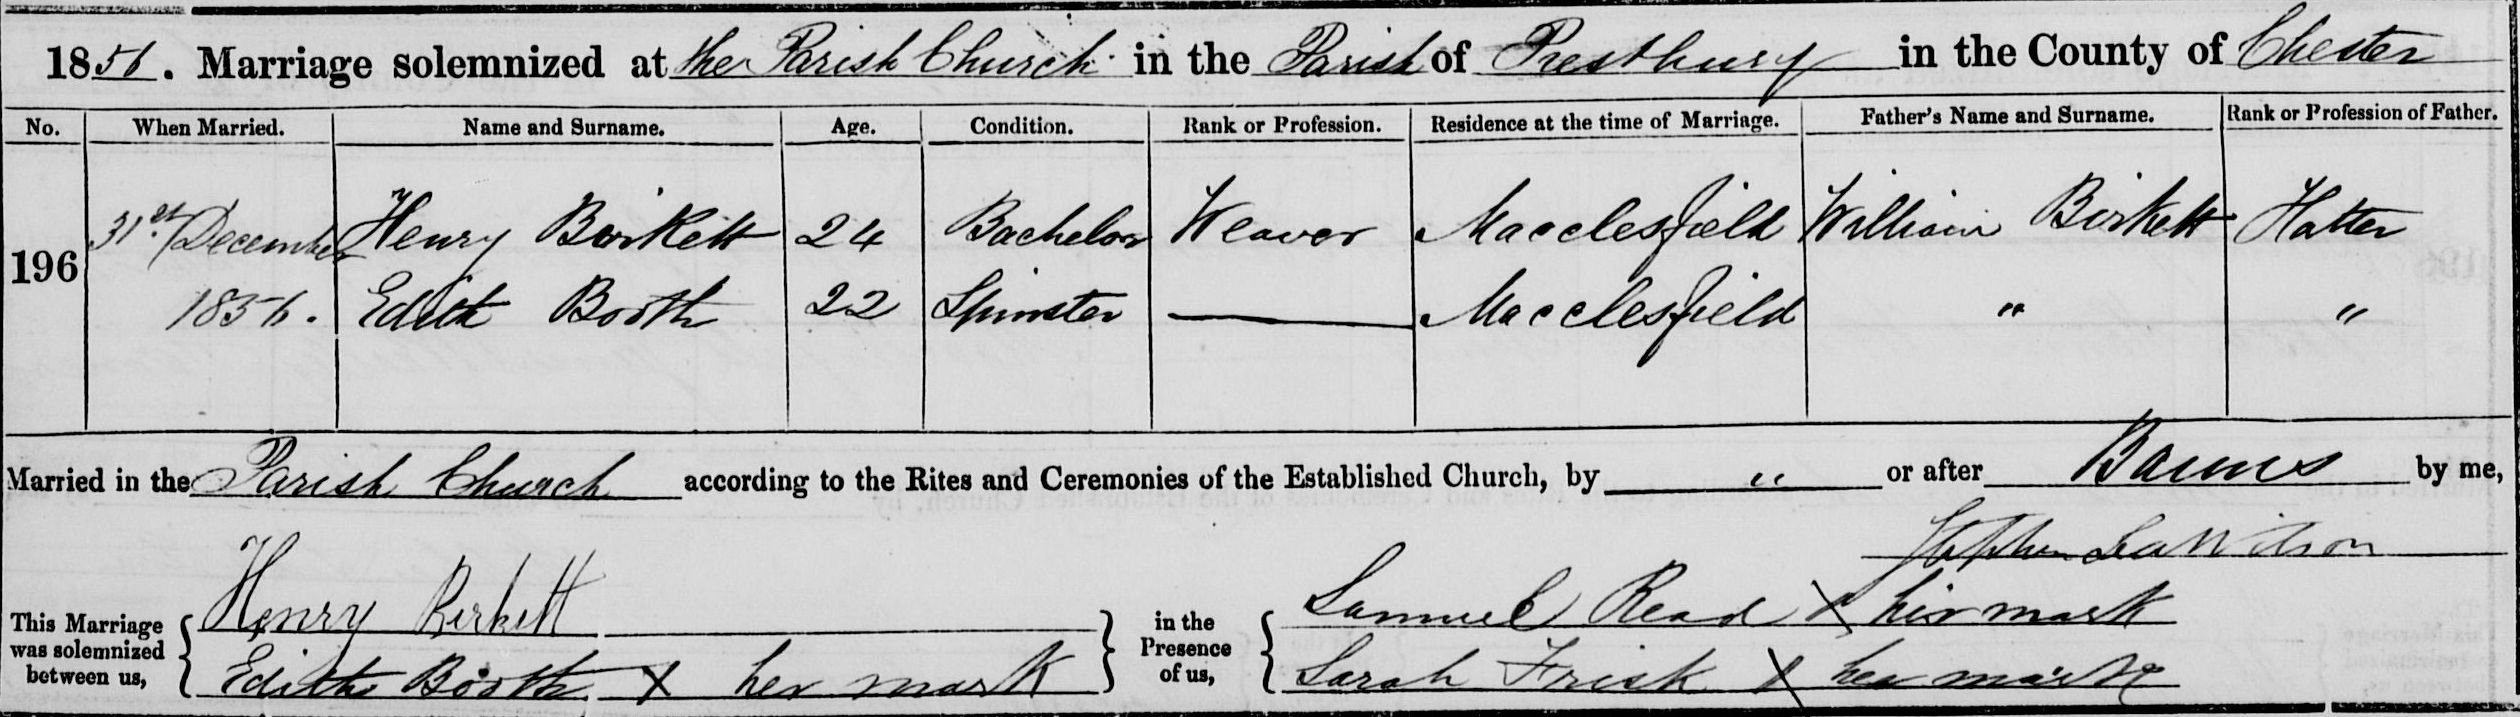 1856. Marriage solemnized at the Parish Church in the Parish of Prestbury in the County of Chester
No. When Married. Name and Surname. Age. Condition. Rank or Profession. Residence at the time of Marriage. Father's Name and Surname. Rank or Profession of Father.
196 31st December Henry Birkett 24 Bachelor Weaver Macclesfield William Birkett Hatter
1856. Edith Booth 22 Spinster — Macclesfield " "
Married in the Parish Church according to the Rites and Ceremonies of the Established Church, by " or after Banns by me,
Stephen Lea Wilson
This Marriage was solemnized between us, { Henry Birkett } in the Presence of us, { Samuel Read X his mark
Edith Booth X her mark Sarah Frisk X her mark